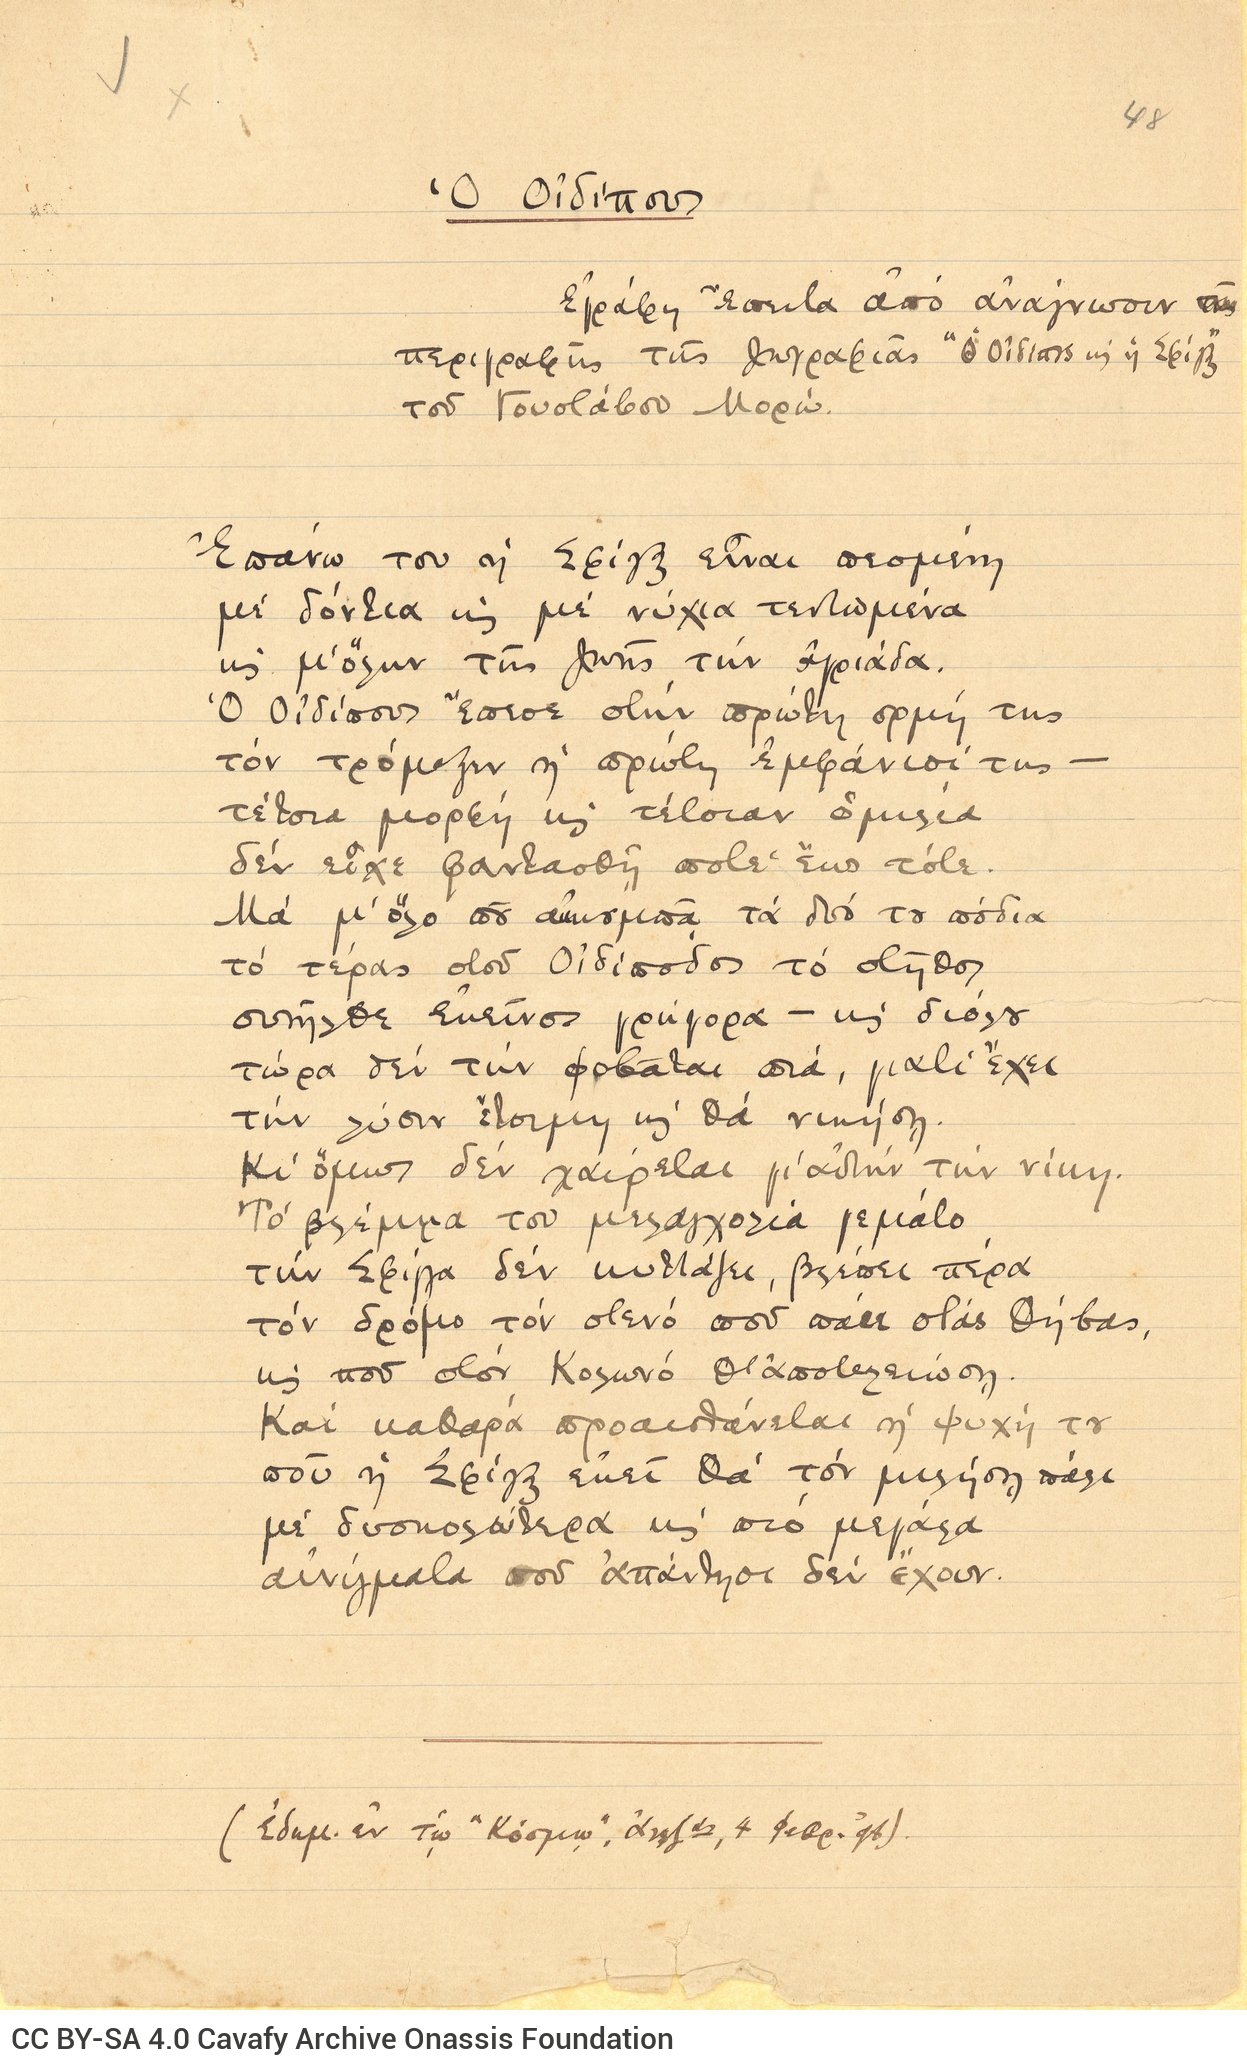 48
Ὁ Οἰδίπους
Ἐγράφη ἔπειτα ἀπό ἀνάγνωσιν τῆς
περιγραφῆς τῆς ζωγραφιᾶς "Ὁ Οἰδίπους κ' ἡ Σφίγξ"
τοῦ Γουστάβου Μορώ.
Ἐπάνω του ἡ Σφίγξ εἶναι πεσμένη
μέ δόντια καί μέ νύχια τεντωμένα
καί μ' ὅλην τῆς ζωῆς τήν ἀγριάδα.
Ὁ Οἰδίπους ἔπεσε στήν πρώτη ορμή της
τόν τρόμαξεν ἡ πρώτη ἐμφάνισί της —
τέτοια μορφή καί τέτοιαν ὁμιλία
δέν εἶχε φαντασθῆ ποτέ ἕως τότε.
Μά μ' ὅλο που ακκουμπᾶ τά δυό του πόδια
τό τέρας στοῦ Οἰδίποδος τό στῆθος
συνῆλθε ἐκεῖνος γρήγορα — καί διόλου
τώρα δέν τήν φοβᾶται πιά, γιατί ἔχει
τήν λύσιν ἕτοιμη καί θά νικήσῃ.
Κι' ὅμως δέν χαίρεται γι' αὐτήν τήν νίκη.
Τό βλέμμα του μελαγχολία γεμάτο
τήν Σφίγγα δέν κυττάζει, βλέπει πέρα
τόν δρόμο τόν στενό πού πάει στάς Θήβας,
καί πού στόν Κολωνό θ' ἀποτελειώσῃ.
Καί καθαρά προαισθάνεται ἡ ψυχή του
πού ἡ Σφίγξ ἐκεῖ θά τόν μιλήσῃ πάλι
μέ δυσκολώτερα καί πιό μεγάλα
αἰνίγματα πού ἀπάντησι δέν ἔχουν.
(Ἐδημ. ἐν τῷ "Κόσμῳ", Ἀλεξας, 4 Φεβρ.
CC BY-SA 4.0 Cavafy Archive Onassis Foundation